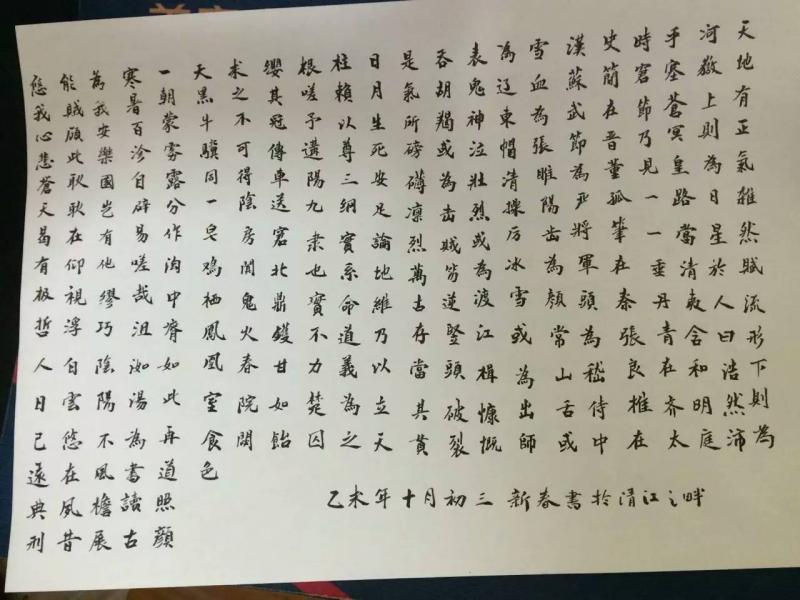 天地有正氣雜然賦流形下則為
河嶽上則為日星於人曰浩然沛
乎塞蒼冥皇路當清夷含和明庭
時窘節乃見一一垂丹青在齐太
史簡在晉董狐筆在秦張良椎在
漢蘇武節為严將軍頭為嵇侍中
雪血為張睢陽齿為顏常山舌或
為辽東帽清操厉冰雪或為出師
表鬼神泣壯烈或為渡江楫慷慨
吞胡羯或為击賊笏逆竖頭破裂
是氣所磅礴凜烈萬古存當其貫
日月生死安足論地維乃以立天
柱賴以尊三綱實系命道義為之
根嗟予遘陽九隶也實不力楚囚
纓其冠傳車送窘北鼎鑊甘如飴
求之不可得陰房闃鬼火春院閟
天黑牛驥同一皂鸡栖鳳凰室食色
一朝蒙雾露分作沟中瘠如此再道照顏
寒暑百沴自辟易嗟哉沮洳湯為書讀古
為我安樂國岂有他繆巧陰陽不風檐展
能賊顾此耿耿在仰視浮白雲悠在夙昔
悠我心悲蒼天曷有极哲人日已遠典刑
乙未年十月初三 新春書於清江之畔